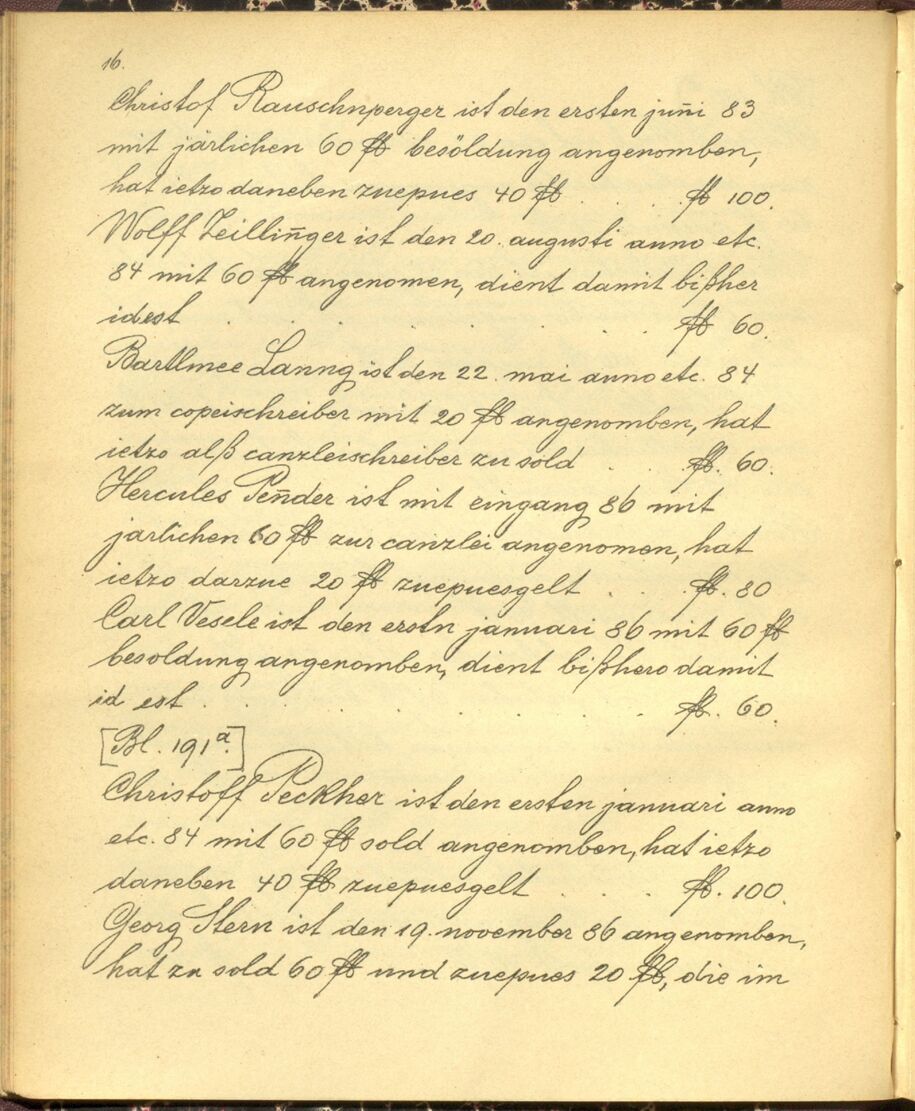 16.
Christof Rauschnperger ist den ersten jun̄i 83
mit järlichen 60 fl besöldung angenomben,
hat ietzo daneben zuepues 40 fl . . . fl 100.
Wolff Zeillin̄ger ist den 20. augusti anno etc.
84 mit 60 fl angenomen, dient damit bißher
idest . . . . . . . fl 60.
Bartlmee Lanng ist den 22. mai anno etc. 84
zum copeischreiber mit 20 fl angenomben, hat
ietzo alß canzleischreiber zu sold . . . fl. 60.
Hercules Pen̄der ist mit eingang 86 mit
jarlichen 60 fl zur canzlei angenomen, hat
ietzo darzue 20 fl zuepuesgelt . . . fl. 80
Carl Vesele ist den erstn januari 86 mit 60 fl
besoldung angenomben, dient bißhero damit
id est . . . . . . . fl. 60.
[Bl. 191a.]
Christoff Peckher ist den ersten januari anno
etc. 84 mit 60 fl sold angenomben, hat ietzo
daneben 40 fl zuepuesgelt . . . . fl. 100.
Georg Stern ist den 19. november 86 angenomben,
hat zu sold 60 fl und zuepues 20 fl, die im